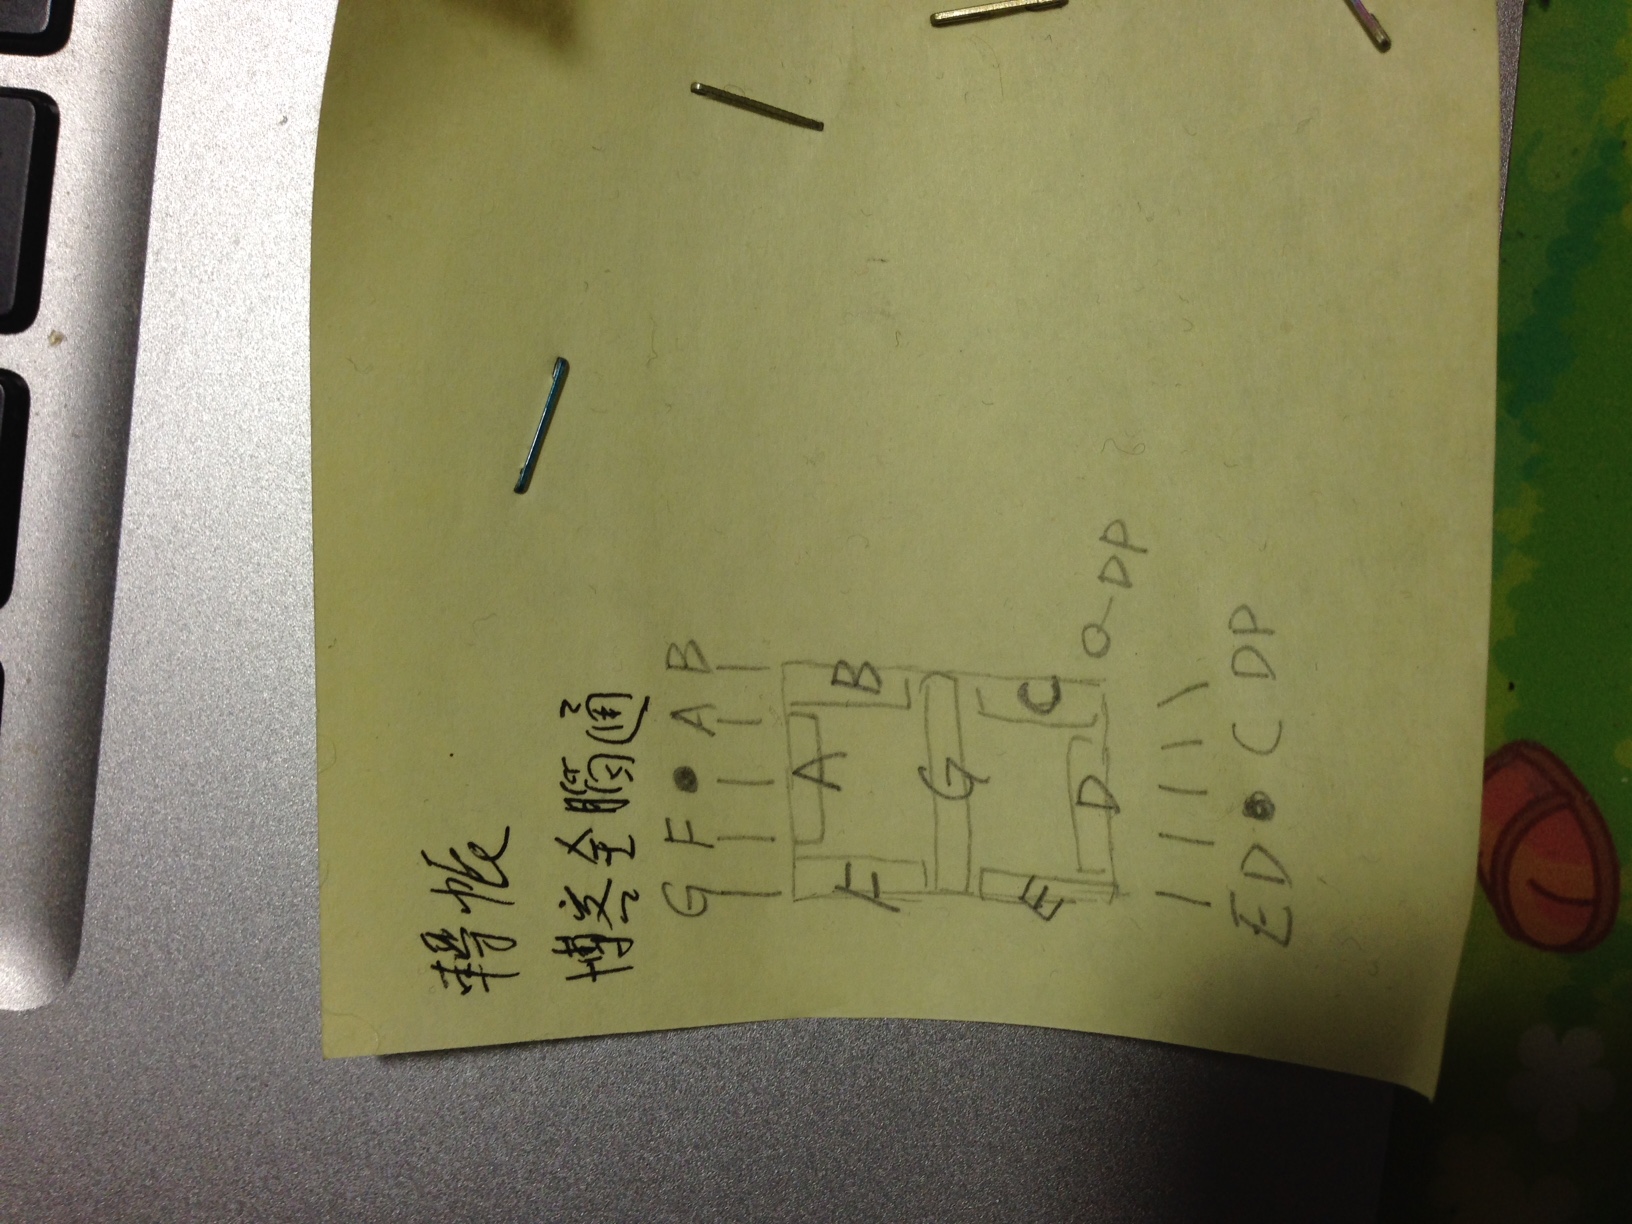 轉帳
博客全腦通
G F • A B
A
F B
G
E C
D
DP
E D • C DP